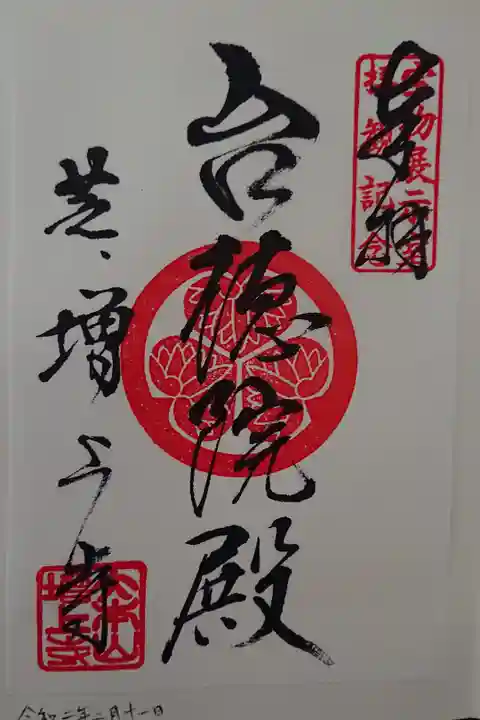 奉拝
宝物展示室
拝観記念
台徳院殿
芝、増上寺
大本山
増上寺
令和二年二月十一日